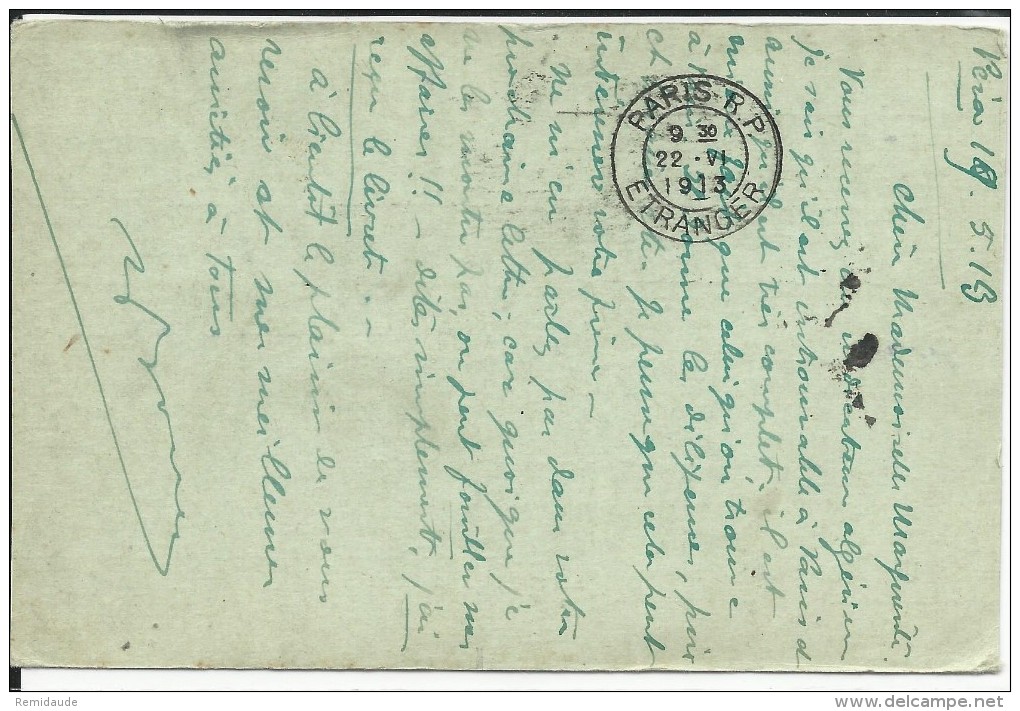 19.5.13
Chère Mademoiselle Marguerite.
Vous recevrez algérien
Je sais qu'il est introuvable à Paris
qui est très complet il est
que celui qu'on trouve
comme les dixièmes, puis
Je pense que cela peut
intéresser votre frère -
Ne m'en parlez pas dans votre
prochaine lettre, car quoique je
ne le montre pas, on peut fouiller mes
affaires !! - dites simplement, j'ai
reçu le livret. -
à bientôt le plaisir de vous
revoir et mes meilleures
amitiés à tous
PARIS R.P.
9 30
22 · VI
1913
ETRANGER
Remidaude
www.delcampe.net